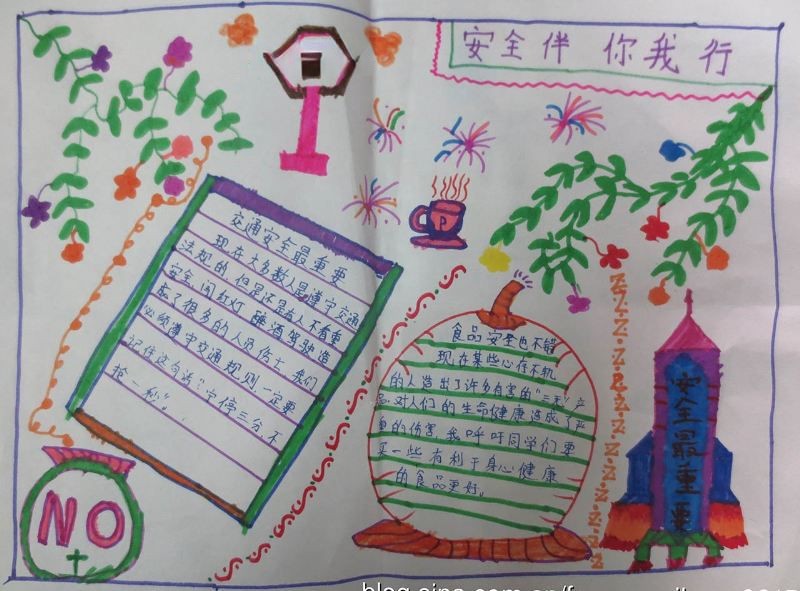 安全伴你我行
交通安全最重要
现在大多数人是遵守交通
法规的,但是还是有人不看重
安全,闯红灯,醉酒驾驶造
成了很多的人员伤亡。我们
必须遵守交通规则,一定要
记住这句话:"宁停三分,不
抢一秒"。
P
食品安全也不错
现在某些心存不轨
的人造出了许多有害的"三无"产
品,对人们的生命健康造成了严
重的伤害,我呼吁同学们要
买一些有利于身心健康
的食品更好。
安全最重要
NO